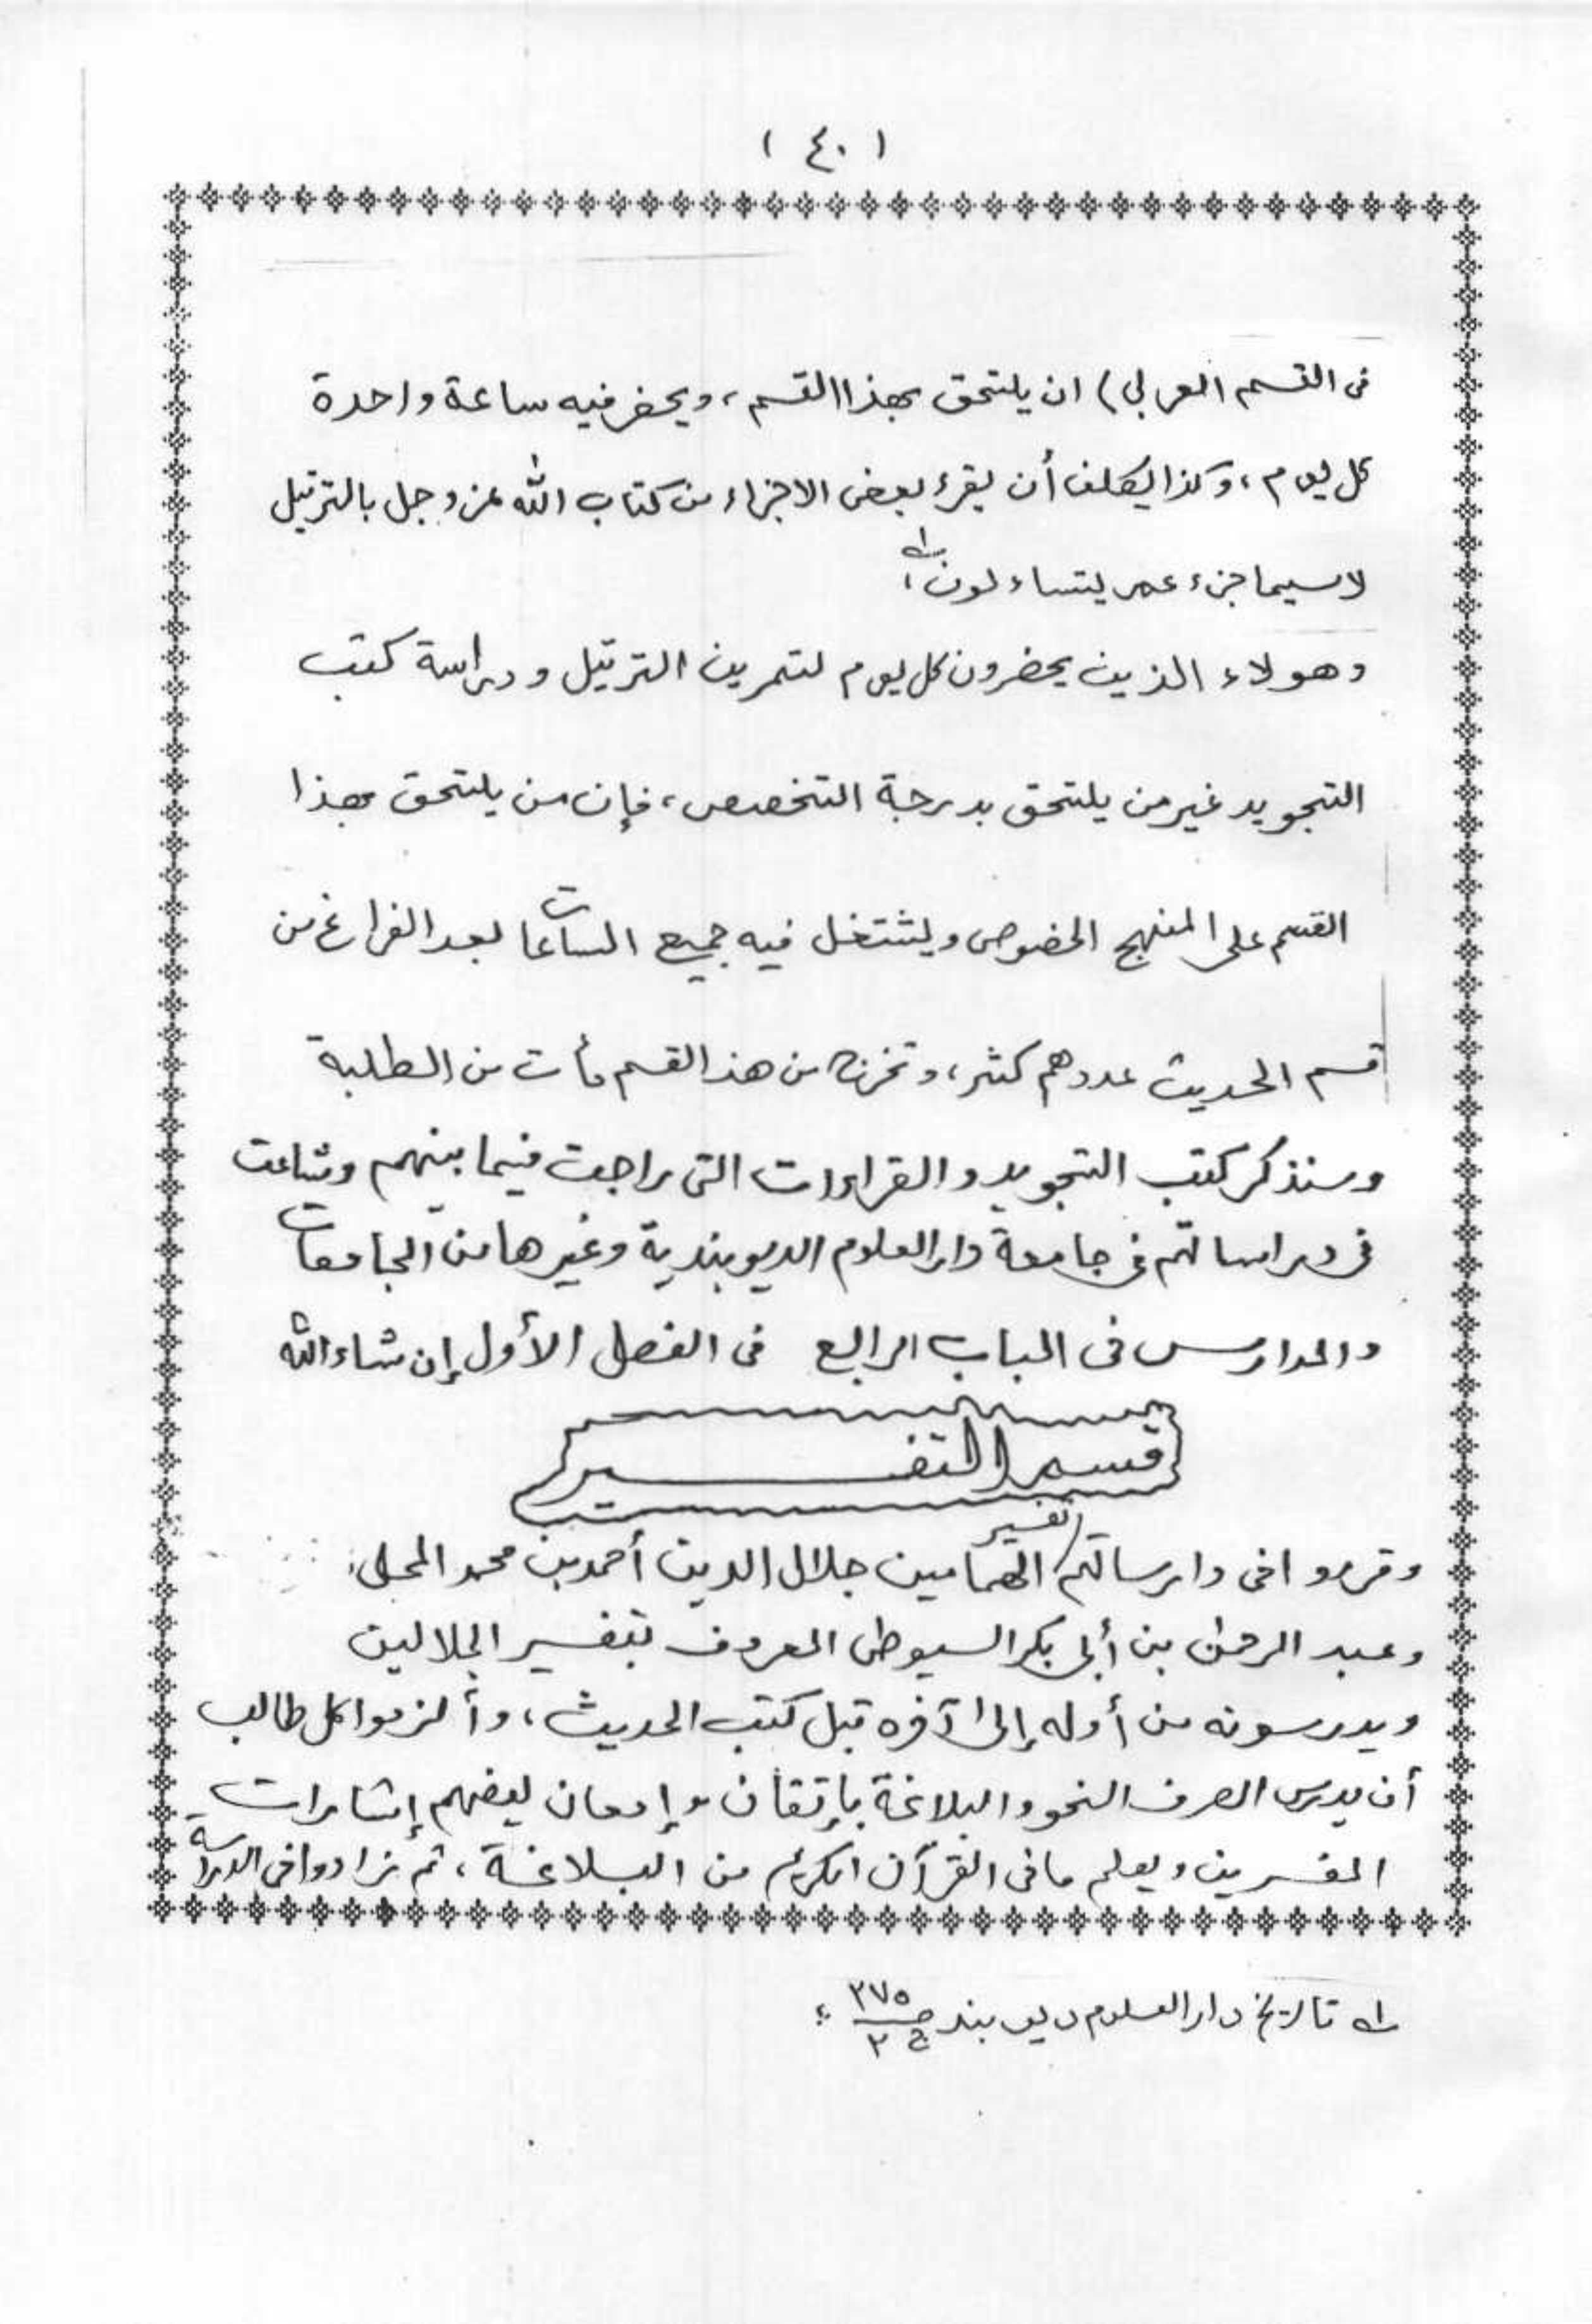 ( ٤٠ )
فى القسم العربي) ان يلتحق بهذا القسم، ويحضر فيه ساعة واحدة
كل يوم، وكذا يكلف أن يقرء بعض الاجزاء من كتاب الله عز وجل بالترتيل
لا سيما جزء عم يتساءلون؛ ١ه
وهولاء الذين يحضرون كل يوم لتمرين الترتيل ودراسة كتب
التجويد غير من يلتحق بدرجة التخصص، فإن من يلتحق بهذا
القسم على المنهج الخصوص ويشتغل فيه جميع الساعات بعد الفراغ من
قسم الحديث عددهم كثر، وتخرج من هذ القسم مأت من الطلبة
وسنذكر كتب التجويد والقراءات التى راجت فيما بينهم وشاعت
فى دراساتهم فى جامعة دار العلوم الديوبندية وغيرها من الجامعات
والمدارس فى الباب الرابع فى الفصل الأول إن شاء الله
قسم التفسير
وقرروا فى دارساتهم تفسير الهمامين جلال الدين أحمد بن محمد المحلى
وعبد الرحمٰن بن أبى بكر السيوطى المعروف بتفسير الجلالين
ويدرسونه من أوله إلى آخره قبل كتب الحديث، وألزموا كل طالب
أن يدرس الصرف النحو والبلاغة بإتقان وإمعان ليفهم إشارات
المفسرين ويعلم ما فى القرآن الكريم من البلاغة، ثم زادوا فى الدراسة
١ه تاريخ دار العلوم ديوبند ص ٢٧٥ ج ٢ ؛